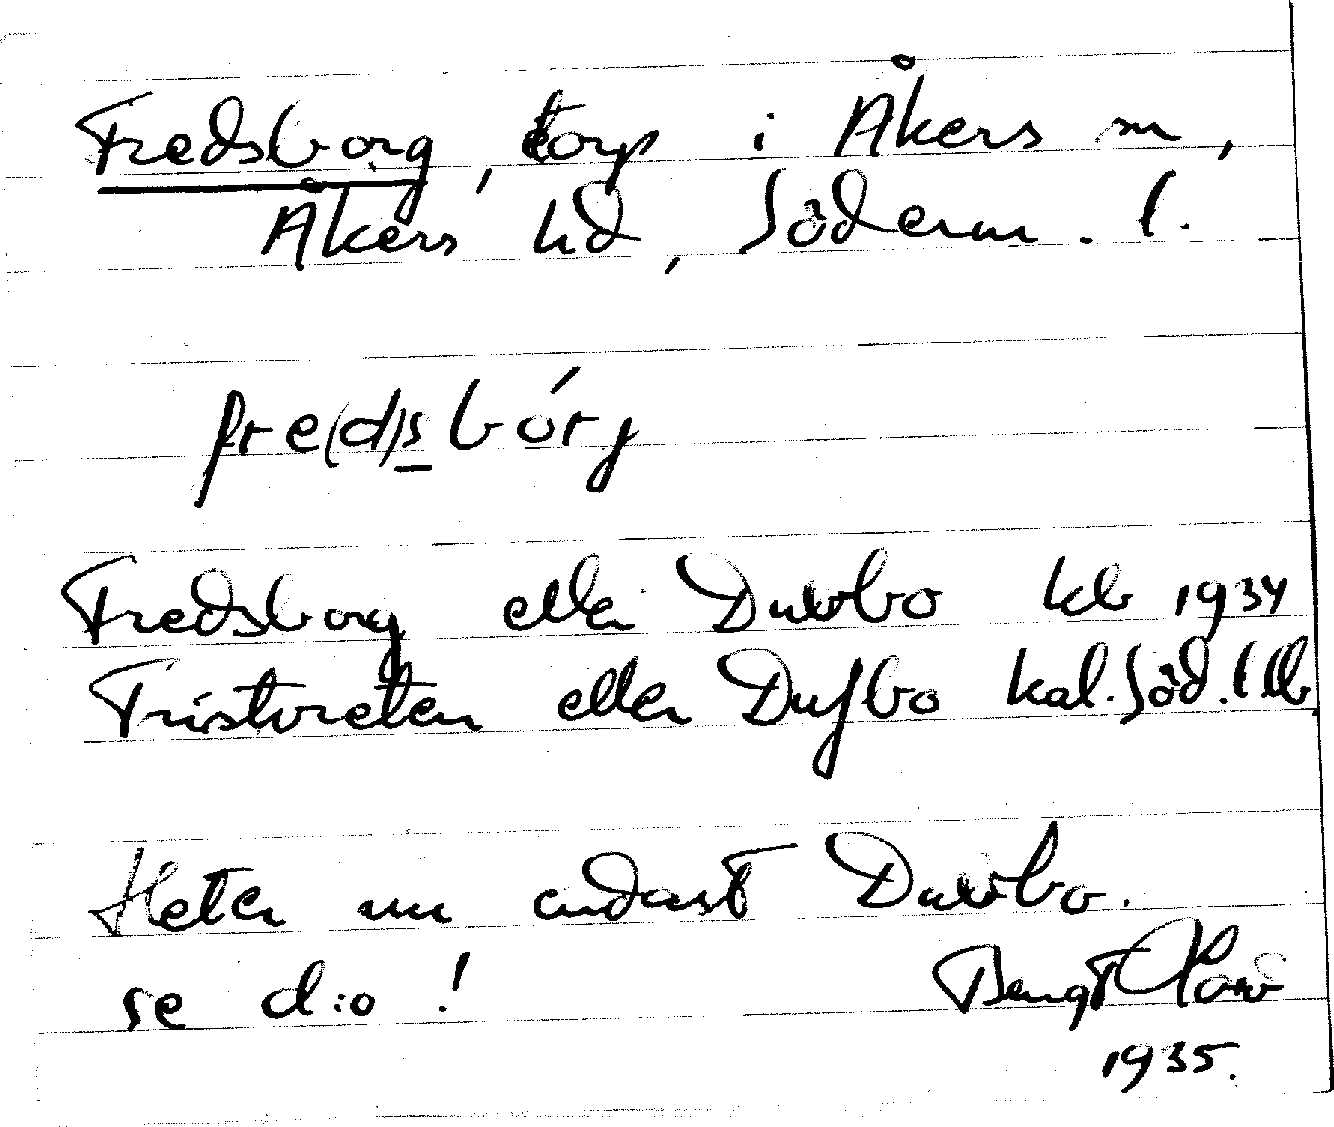 Fredsborg, torp i Åkers sn,
Åkers hd, Söderm. l.
fre(d)sbórj
Fredsborg eller Duvbo kb 1934
Fristvreten eller Dufbo kal. Söd. l
Heter nu endast Duvbo.
se d:o! Bengt
1935.